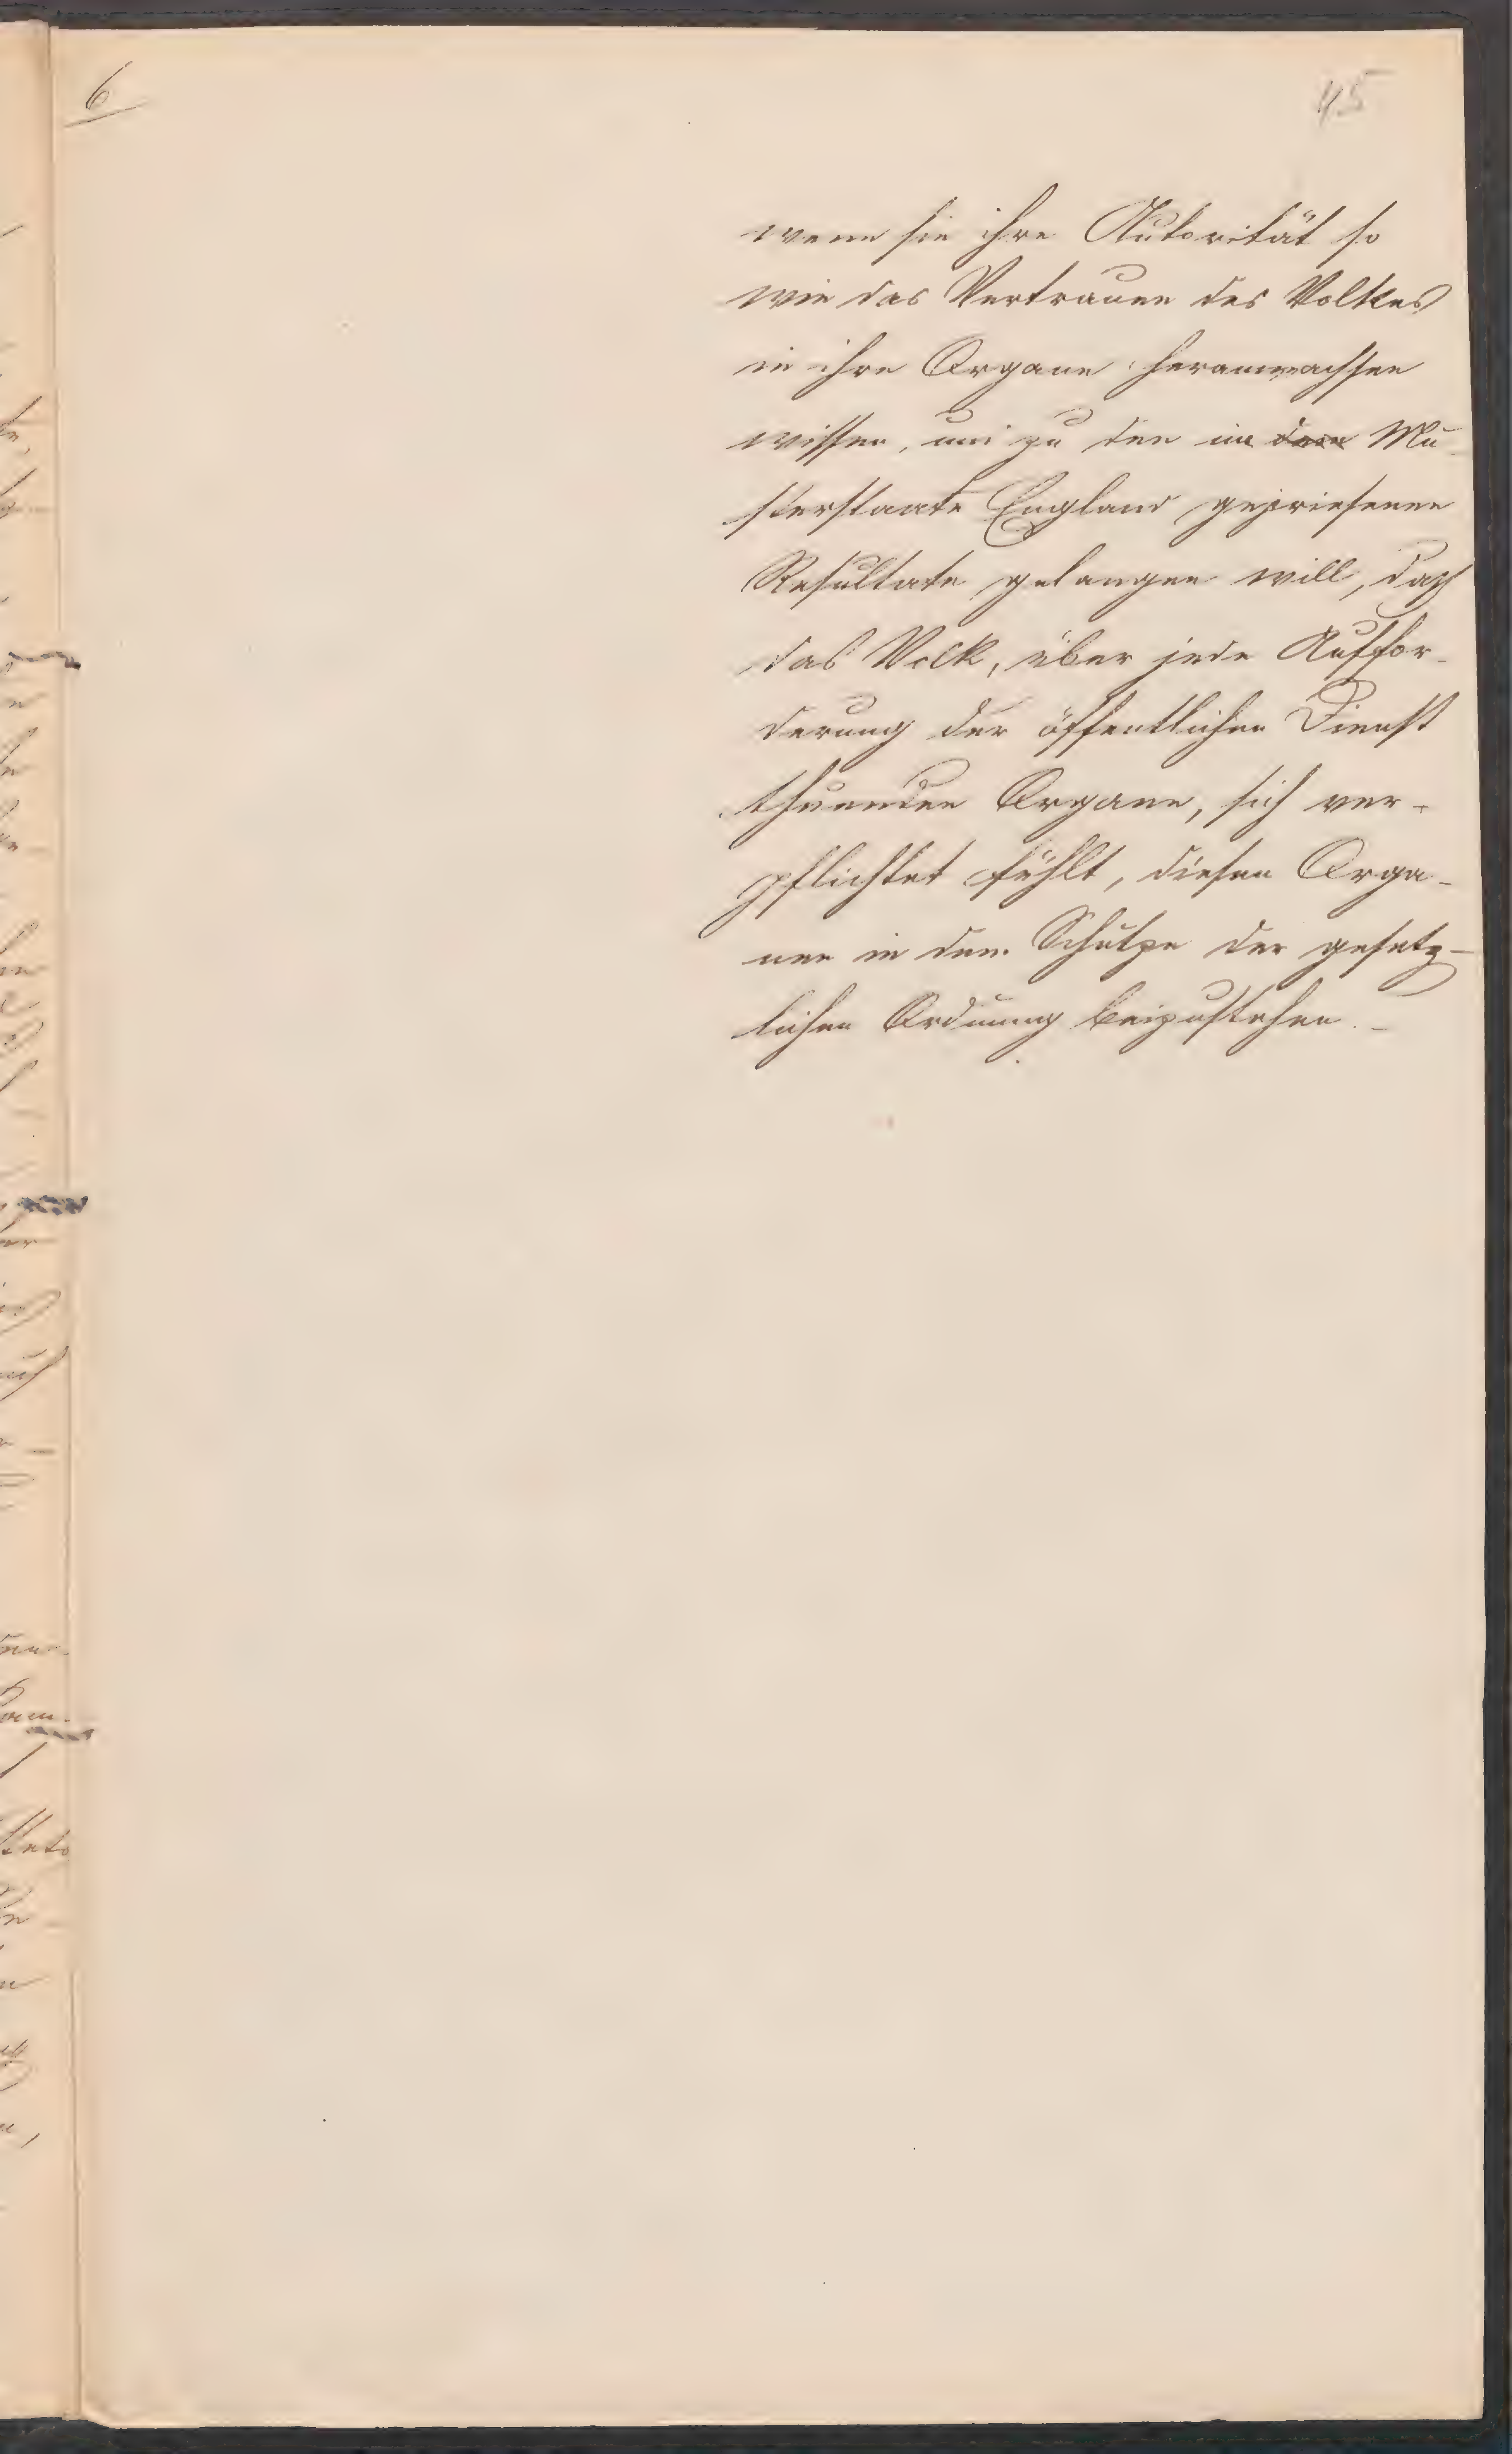 6
45
wenn sie ihre Autorität so
wie das Vertrauen des Volkes
in ihre Organe heranwachsen
wissen, um zu den im dem Mu-
sterstaate England gepriesenen
Resultate gelangen will, daß
das Volk, über jede Auffor-
derung der öffentlichen Dienst
thuenden Organe, sich ver-
pflichtet fühlt, diesen Orga-
nen in dem Schutze der gesetz-
lichen Ordnung beizustehen. -